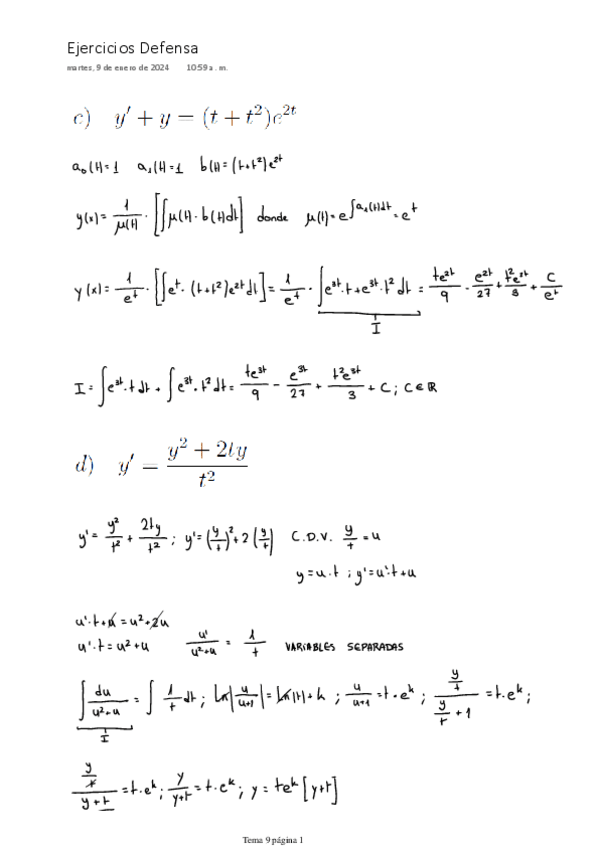 Ejercicios Defensa
martes, 9 de enero de 2024 10:59 a. m.
c) y' + y = (t + t²)e^{2t}
a₀(t)=1 a₁(t)=1 b(t)=(t+t²)e^{2t}
y(x)= 1/μ(t) · [∫μ(t)·b(t)dt] donde μ(t)=e^{∫a₁(t)dt}=e^t
y(x)= 1/e^t · [∫e^t·(t+t²)e^{2t}dt] = 1/e^t · ∫e^{3t}·t+e^{3t}·t² dt = te^{2t}/9 - e^{2t}/27 + t²e^{2t}/3 + C/e^t
I
I = ∫e^{3t}·t dt + ∫e^{3t}·t² dt = te^{3t}/9 - e^{3t}/27 + t²e^{3t}/3 + C ; C∈ℝ
d) y' = (y² + 2ty)/t²
y' = y²/t² + 2ty/t² ; y' = (y/t)² + 2(y/t) C.D.V. y/t = u
y = u·t ; y' = u'·t+u
u'·t+u = u²+2u
u'·t = u²+u u'/(u²+u) = 1/t VARIABLES SEPARADAS
∫ du/(u²+u) = ∫ 1/t dt ; ln|u/(u+1)| = ln|t|+k ; u/(u+1) = t·e^k ; (y/t)/(y/t + 1) = t·e^k ;
I
(y/t)/((y+t)/t) = t·e^k ; y/(y+t) = t·e^k ; y = te^k [y+t]
Tema 9 página 1